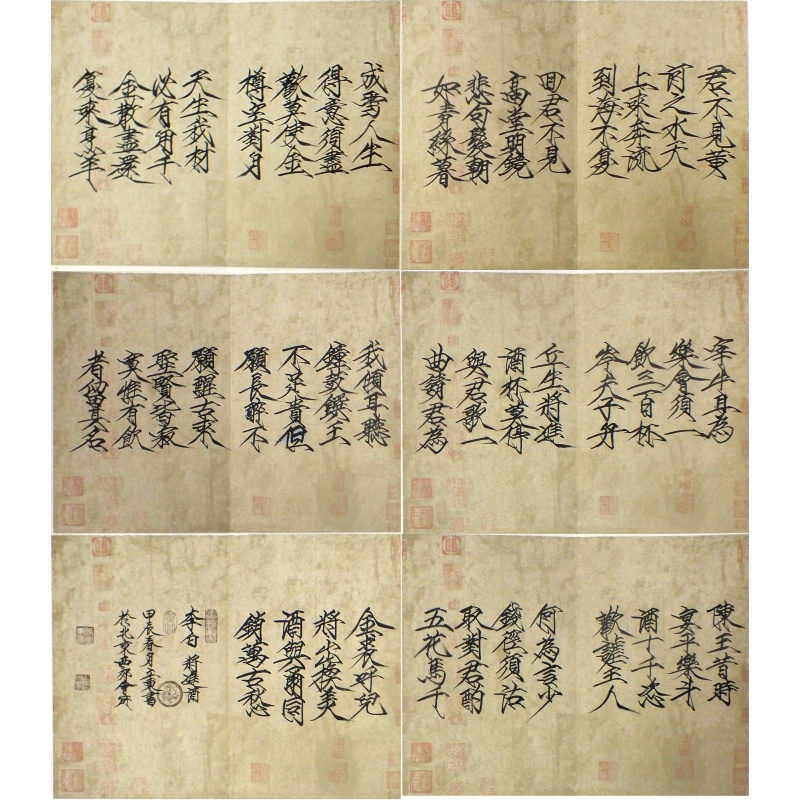 君不見黄
河之水天
上來奔流
到海不復
回君不見
高堂明鏡
悲白髮朝
如青絲暮
成雪人生
得意須盡
歡莫使金
樽空對月
天生我材
必有用千
金散盡還
復來烹羊
宰牛且為
樂會須一
飲三百杯
岑夫子丹
丘生將進
酒杯莫停
與君歌一
曲請君為
我傾耳聽
鐘鼓饌玉
不足貴但
願長醉不
願醒古來
聖賢皆寂
寞惟有飲
者留其名
陳王昔時
宴平樂斗
酒十千恣
歡謔主人
何為言少
錢徑須沽
取對君酌
五花馬千
金裘呼兒
將出換美
酒與爾同
銷萬古愁
李白 將進酒
甲辰春月
於北京西郊